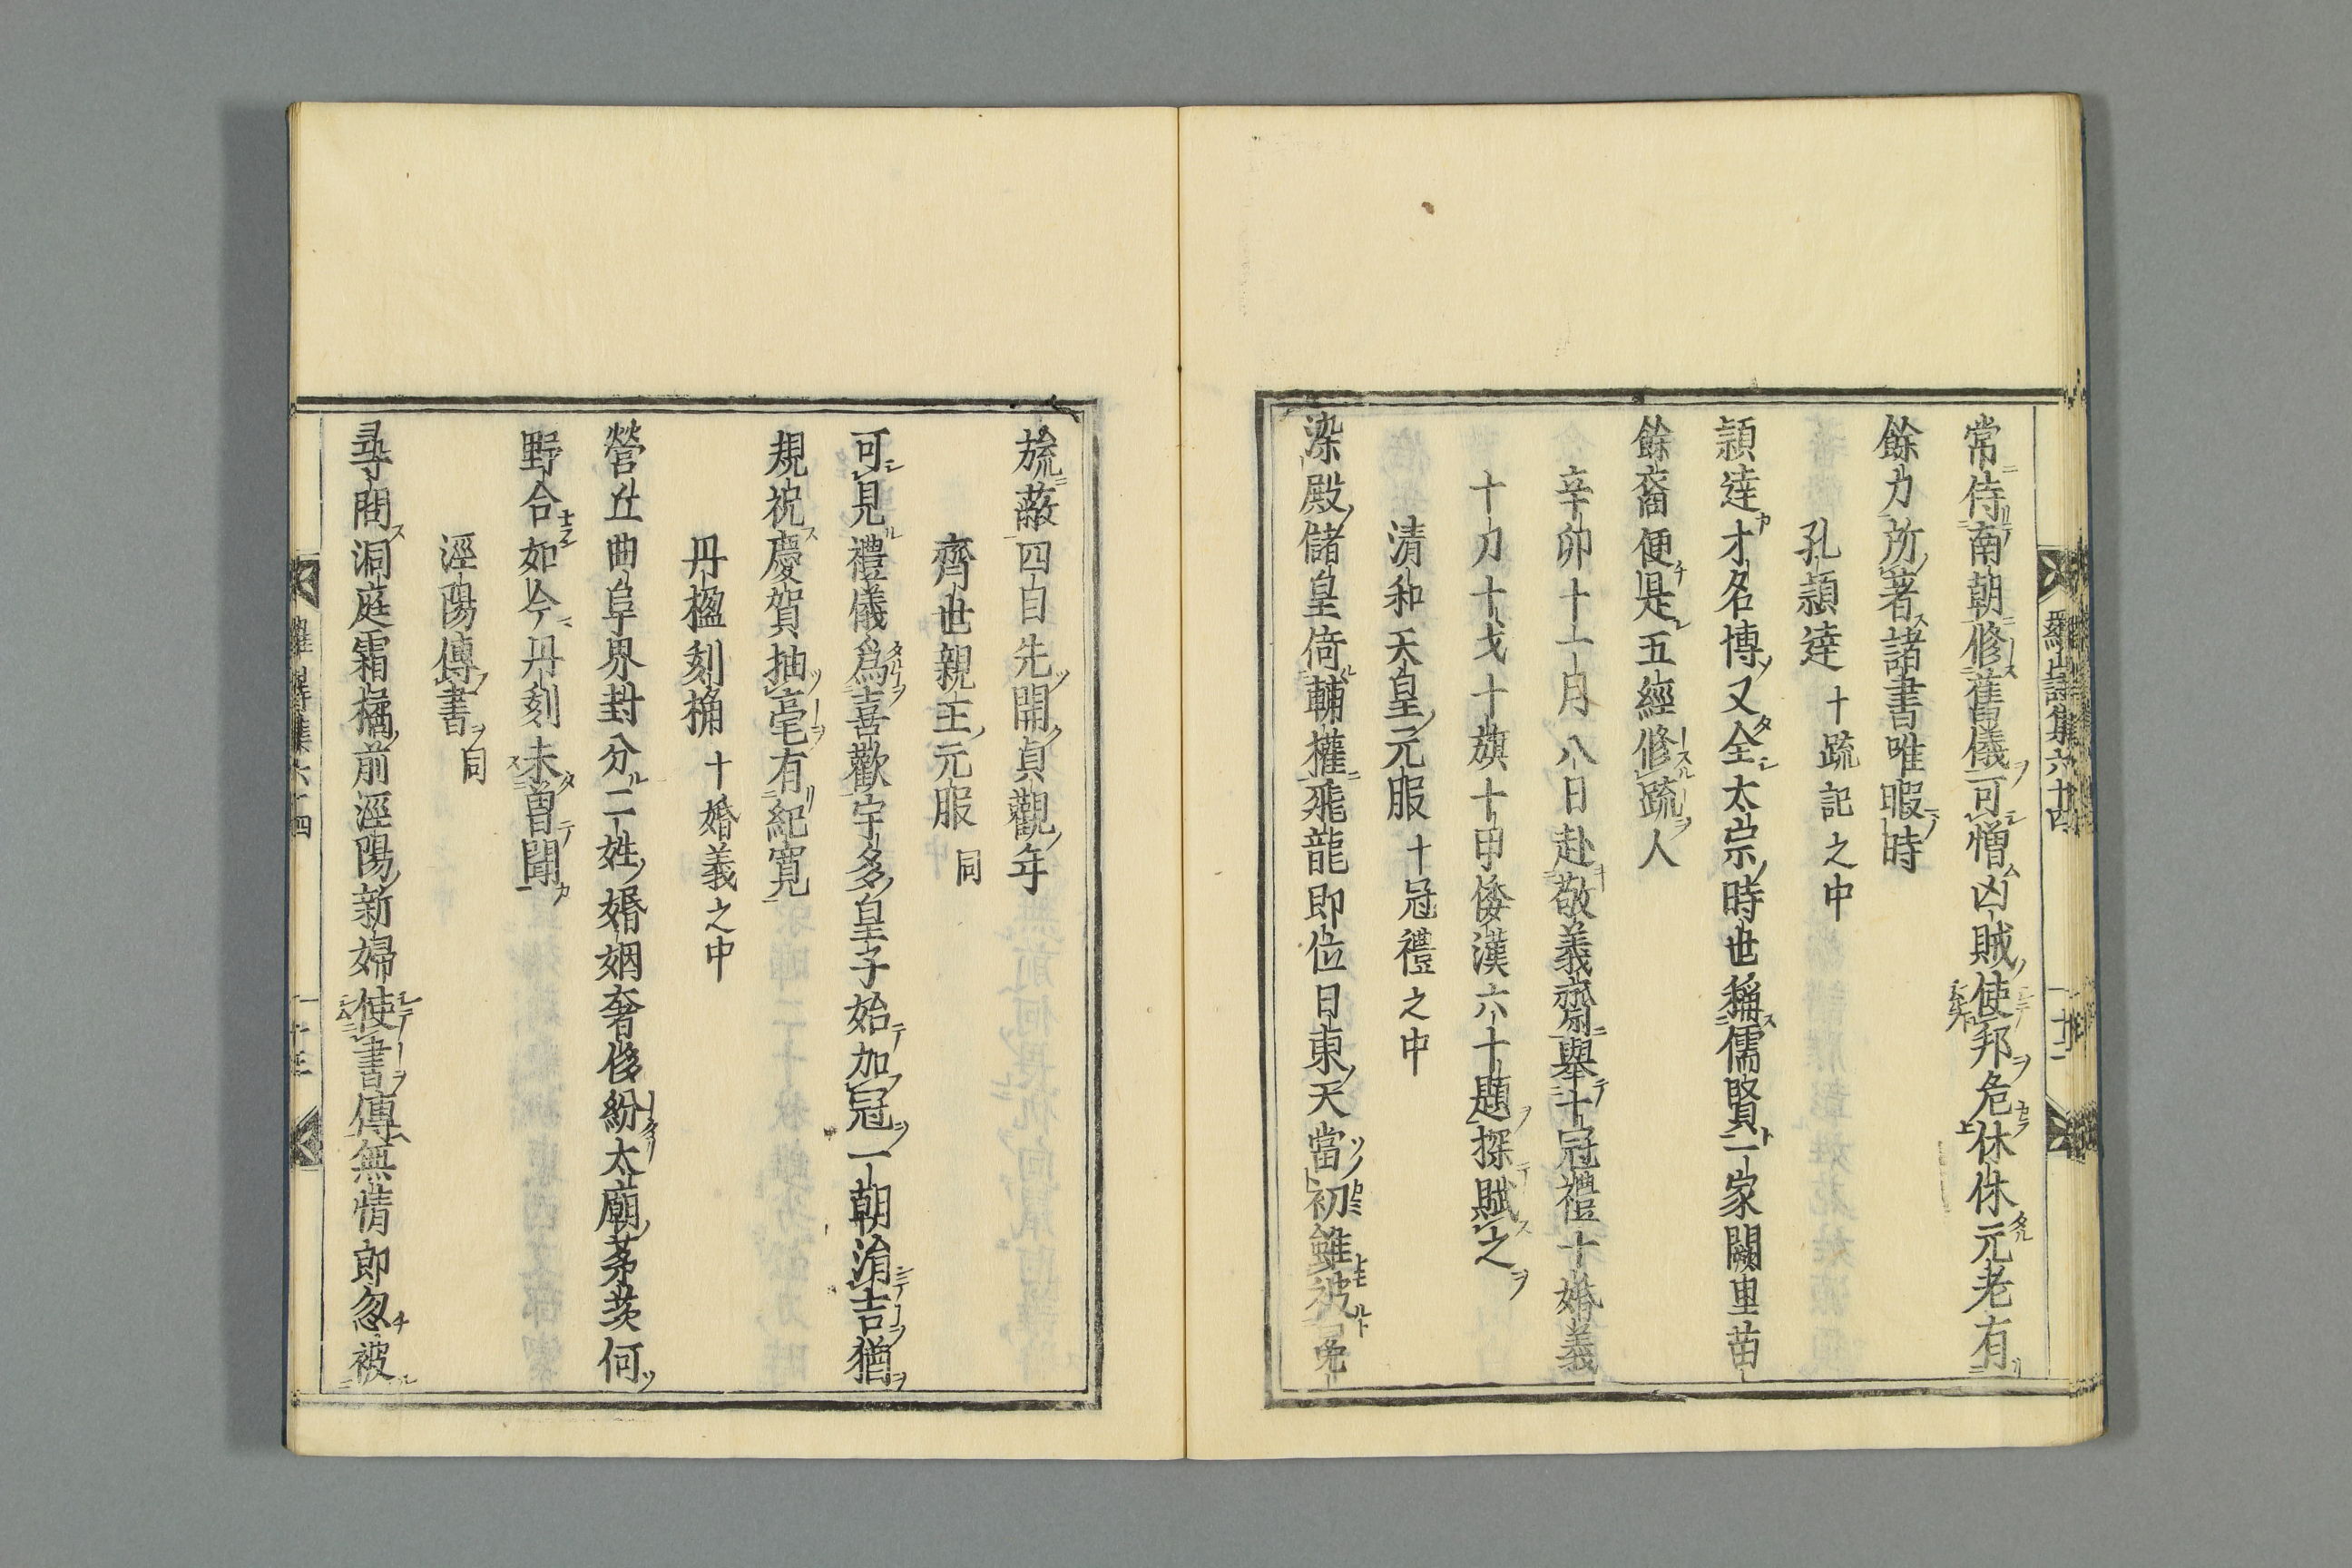 羅山詩集六十四
二十二
常侍南朝修舊儀可憎凶賊使邦危休休元老有
餘力所著諸書唯暇時
孔頴達 十疏記之中
頴達才名博又全太宗時世稱儒賢一家闕里苗
餘裔便是五經修疏人
辛卯十一月八日赴敬義齋擧十冠禮十婚義
十刀十戈十旗十甲倭漢六十題探賦之
清和天皇元服 十冠禮之中
染殿儲皇倚輔權飛龍即位日東天當初雖被
旒蔽四目先開貞觀年
齊世親王元服 同
可見禮儀爲喜歡宇多皇子始加冠一朝涓吉猶
規祝慶賀抽毫有紀寛
丹楹刻桷 十婚義之中
營丘曲阜界封分二姓婚姻奢侈紛太廟茅茨何
野合如今丹刻未曽聞
涇陽傳書 同
尋問洞庭霜橘前涇陽新婦使書傳無情郎忽被